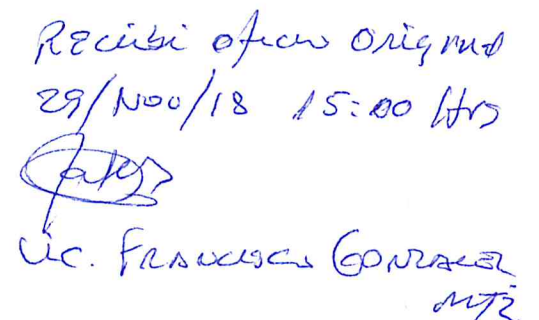 Recibi oficio original
29/Nov/18 15:00 Hrs
Lic. Francisco Gonzalez
Mtz